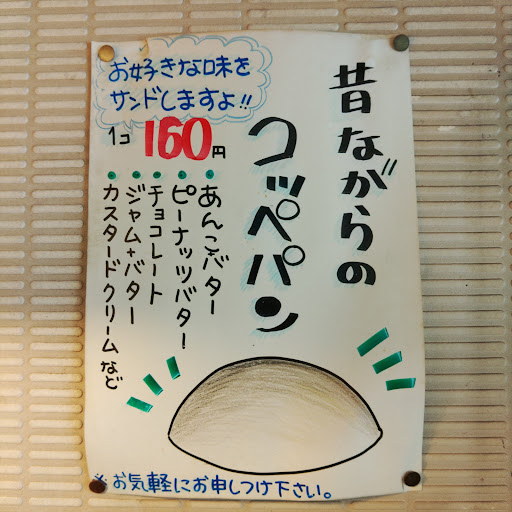 昔ながらの
コッペパン
お好きな味を
サンドしますよ!!
1コ 160円
・あんこバター
・ピーナッツバター
・チョコレート
・ジャム+バター
・カスタードクリームなど
※お気軽にお申しつけ下さい。